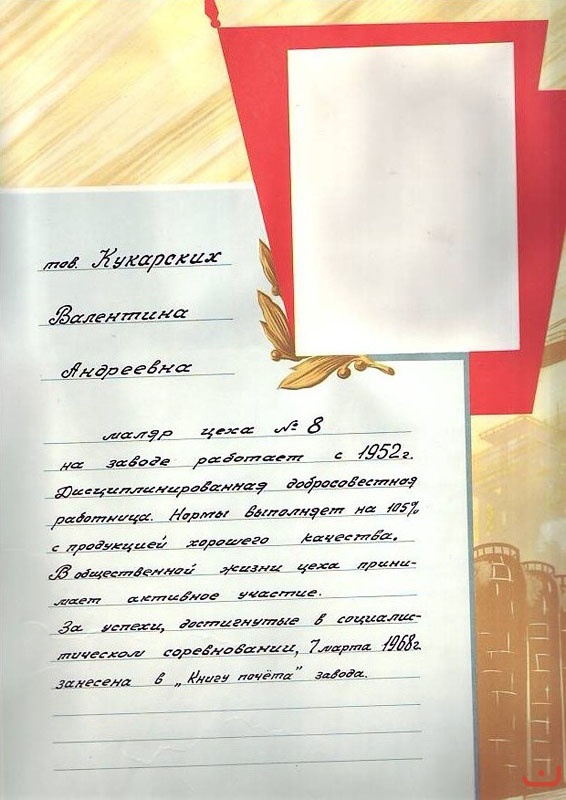 тов. Кукарских
Валентина
Андреевна
маляр цеха № 8
на заводе работает с 1952г.
Дисциплинированная добросовестная
работница. Нормы выполняет на 105%
с продукцией хорошего качества.
В общественной жизни цеха прини-
мает активное участие.
За успехи, достигнутые в социалис-
тическом соревновании, 7 марта 1968г
занесена в „Книгу почёта" завода.